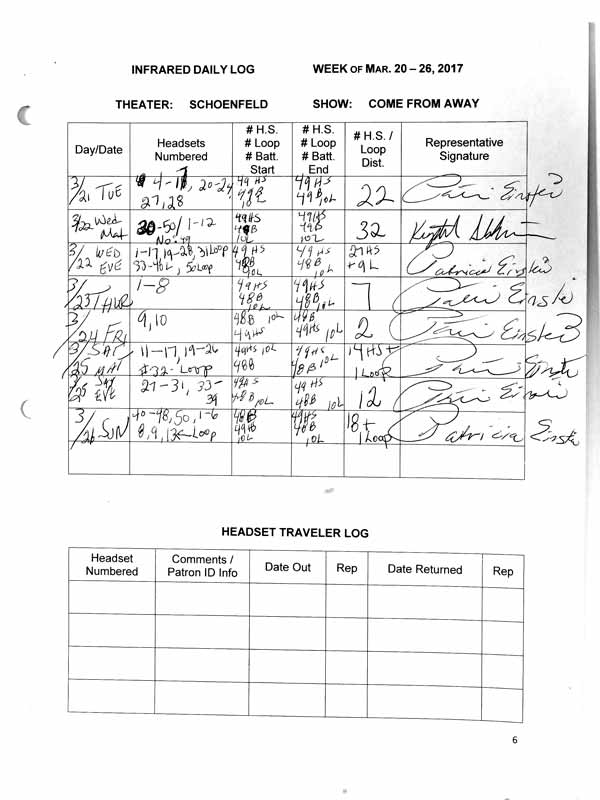 INFRARED DAILY LOG WEEK OF MAR. 20 – 26, 2017
THEATER: SCHOENFELD SHOW: COME FROM AWAY
Day/Date
Headsets
Numbered
# H.S.
# Loop
# Batt.
Start
# H.S.
# Loop
# Batt.
End
# H.S. /
Loop
Dist.
Representative
Signature
3/21 TUE
20-24,
27, 28
49 HS
10L
49 HS
10L
22
3/22 Wed
Mat
30-50/1-12
No: 49
49HS
10L
49HS
10L
32
3/22 WED
EVE
1-17, 19-28, 31 Loop
49 HS
48B
10L
49 HS
48B
10L
27HS
+9L
Patricia
3/23 THUR
1-8
49HS
48B
10L
49HS
48B
10L
7
3/24 FRI
9, 10
48B 10L
49HS
48B
49HS 10L
2
3/25 SAT
MAT
11-17, 19-26
#32- Loop
49HS 10L
48B
49HS
48B 10L
14HS+
1 Loop
3/25 SAT
EVE
27-31, 33-
39
48B 10L
49 HS
48B 10L
12
3/26 SUN
40-48, 50, 1-6
8, 9, Loop
10L
49HS
48B
10L
18+
1 Loop
Patricia
HEADSET TRAVELER LOG
Headset
Numbered
Comments /
Patron ID Info
Date Out
Rep
Date Returned
Rep
6